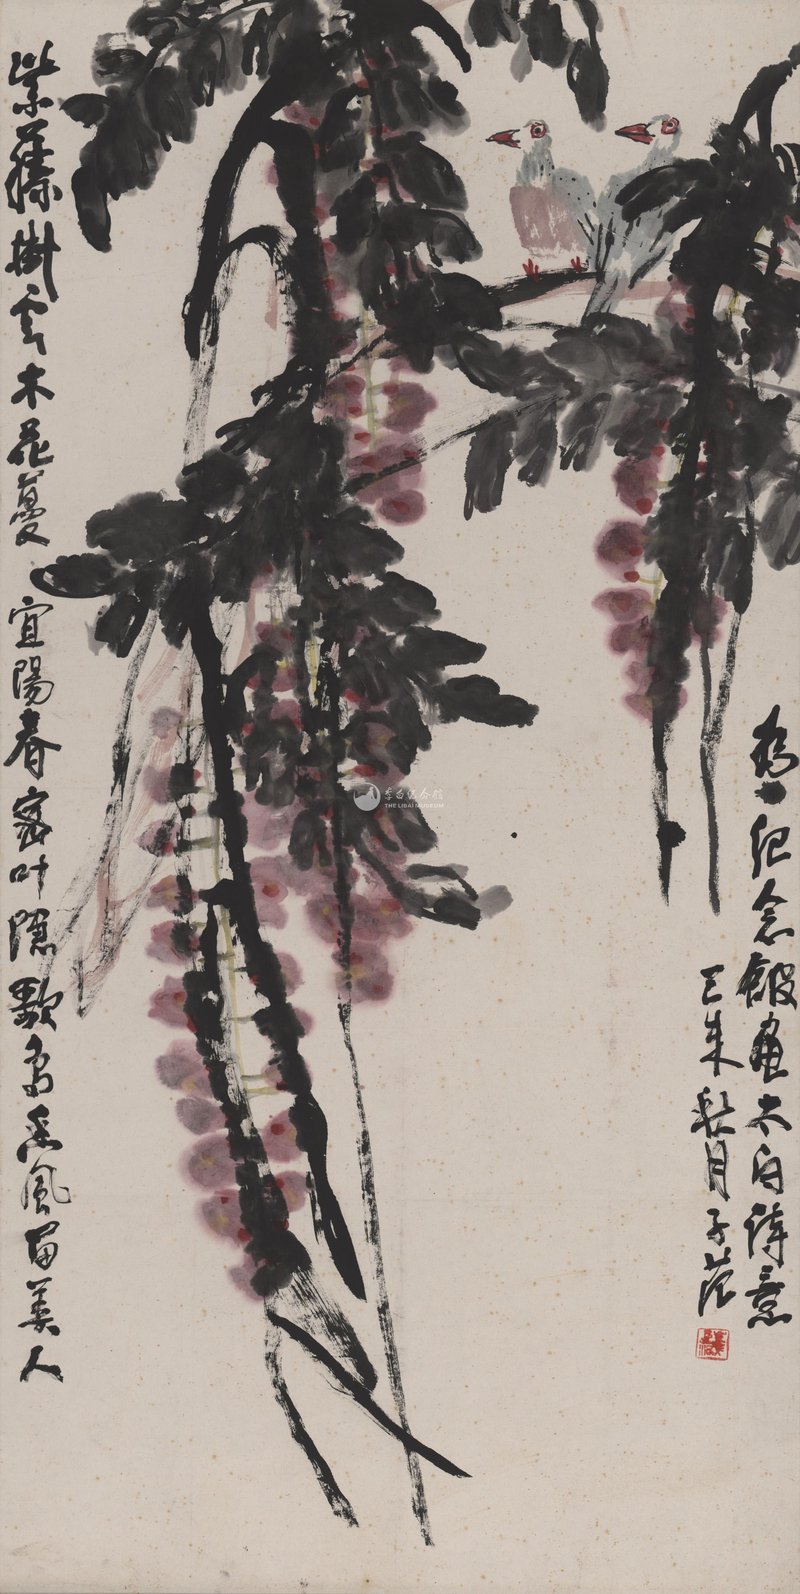 为纪念館畫太白詩意
己未秋月子范
紫藤掛云木花蔓宜陽春密叶隱歌鳥香風留美人
李白纪念馆
THE LIBAI MUSEUM